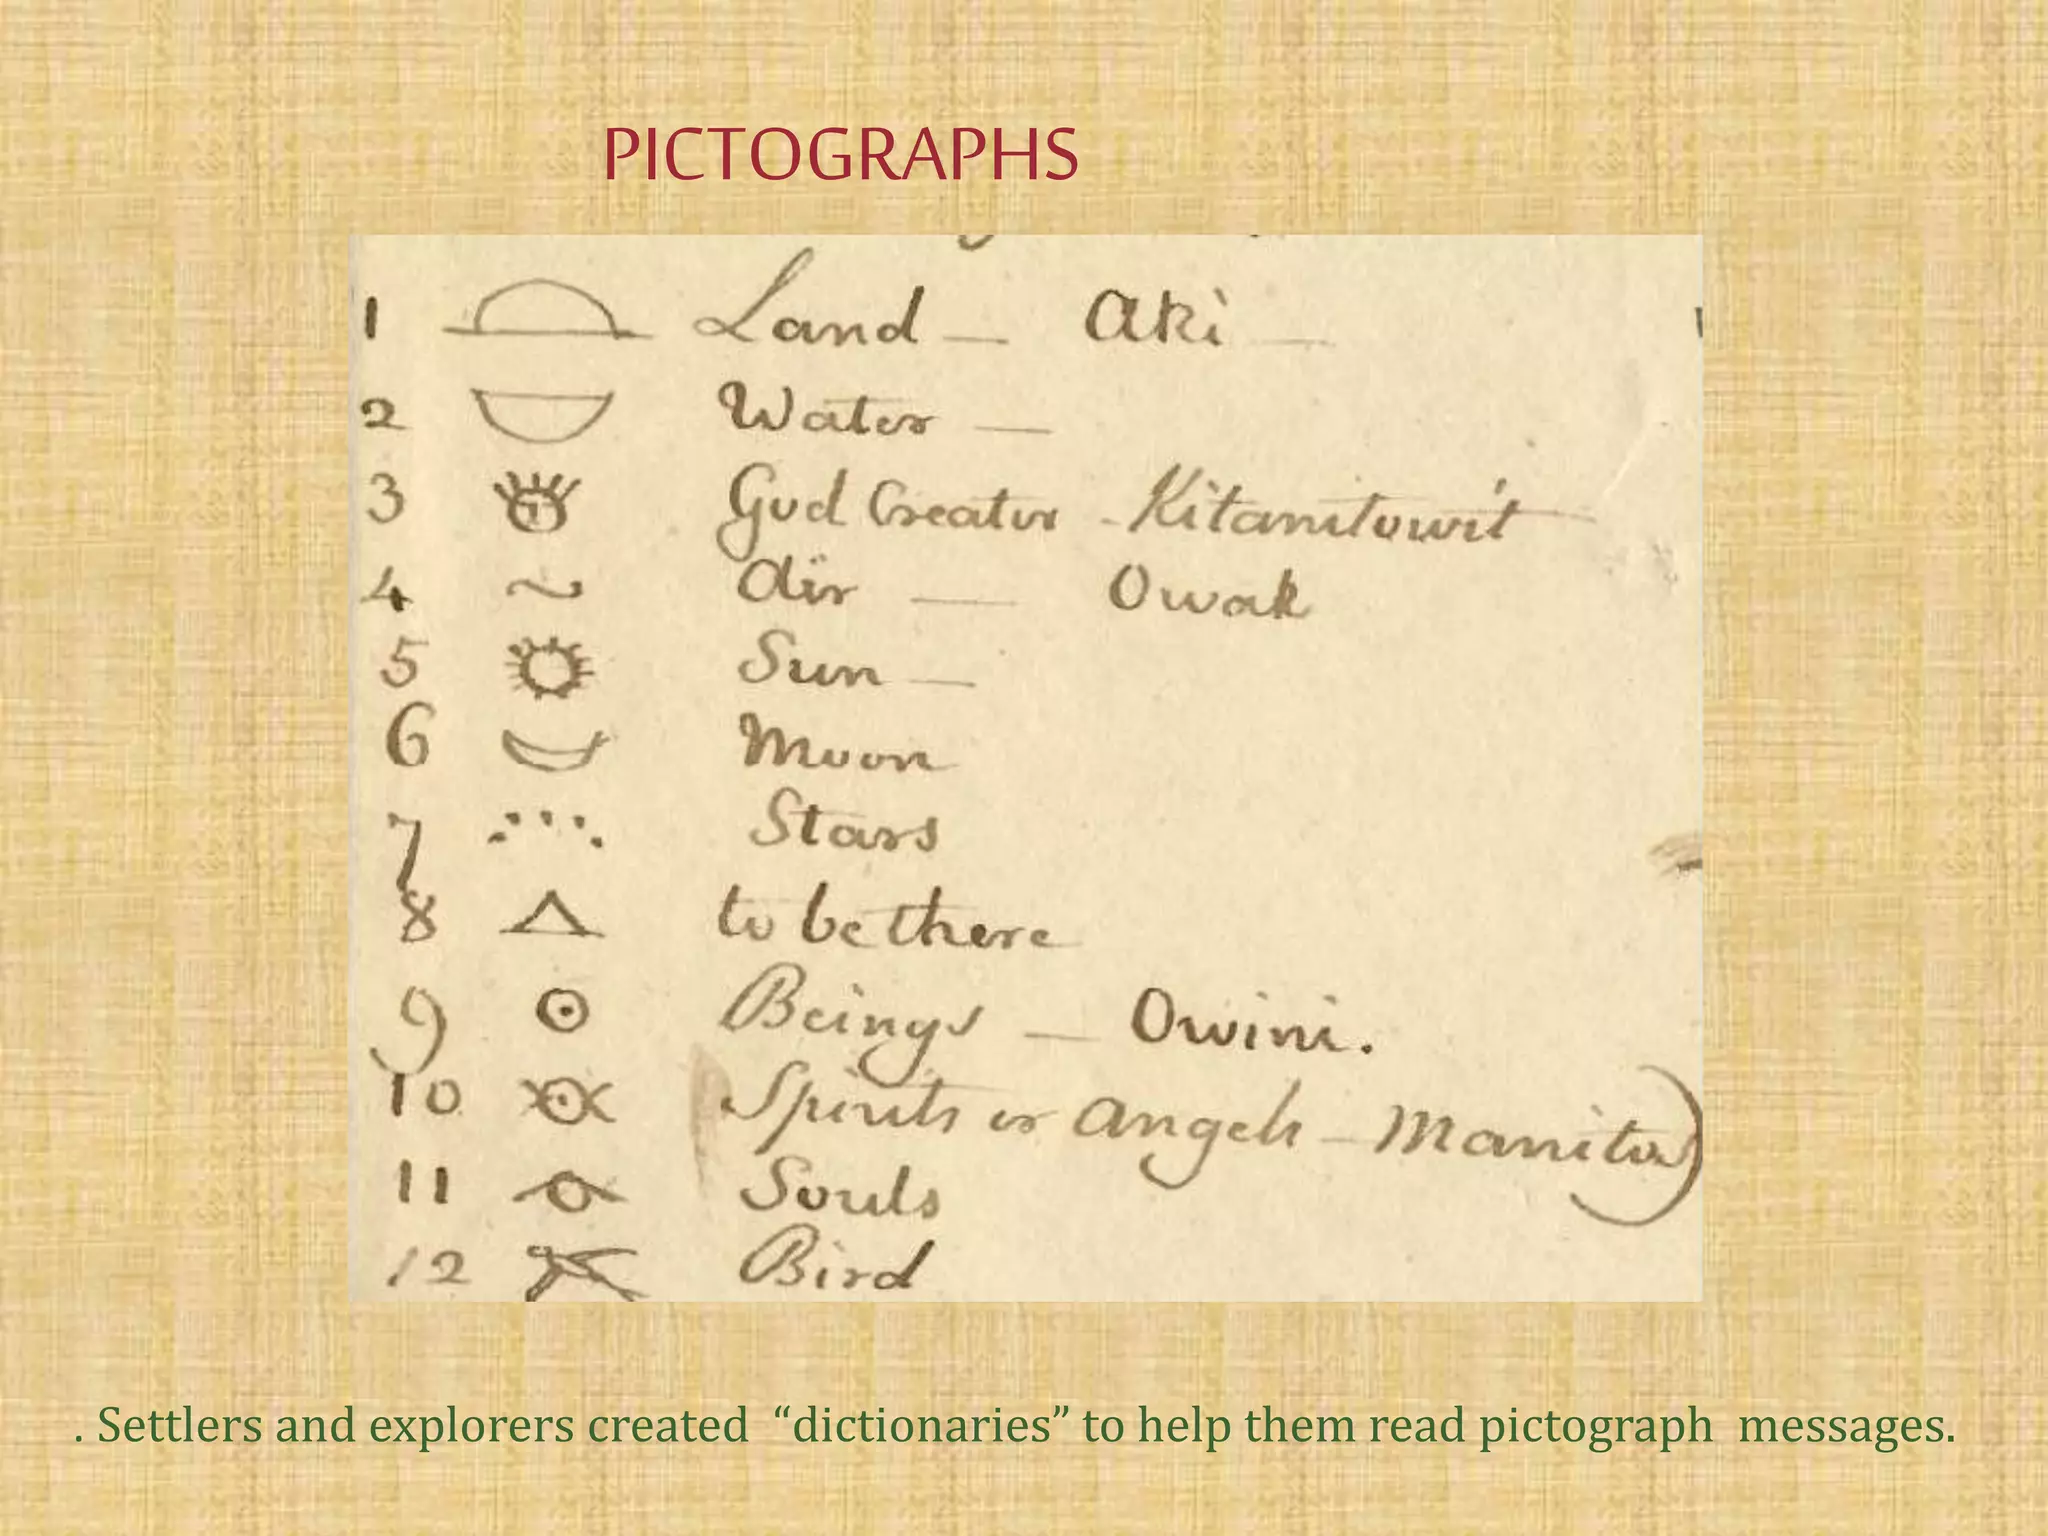 PICTOGRAPHS
1 Land — Aki —
2 Water —
3 God Creator - Kitanitowit
4 Air — Owak
5 Sun —
6 Moon
7 Stars
8 to be there
9 Beings — Owini.
10 Spirits or Angels - Manito
11 Souls
12 Bird
. Settlers and explorers created “dictionaries” to help them read pictograph messages.